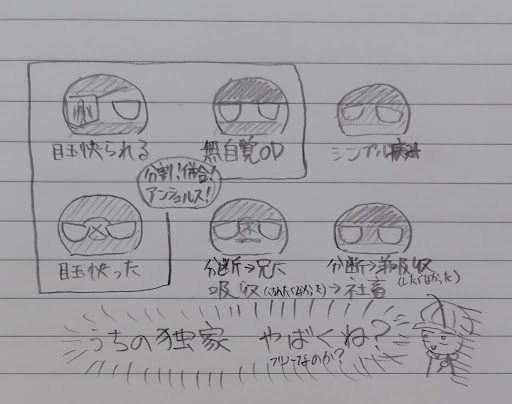 目玉抉られる
無自覚OD
シンプル
分割！併合！
アンシュルス！
目玉抉った
分断→兄に
吸収(されたくなかった)→社畜
分断→弟吸収
(したくなかった)
うちの独家 やばくね？